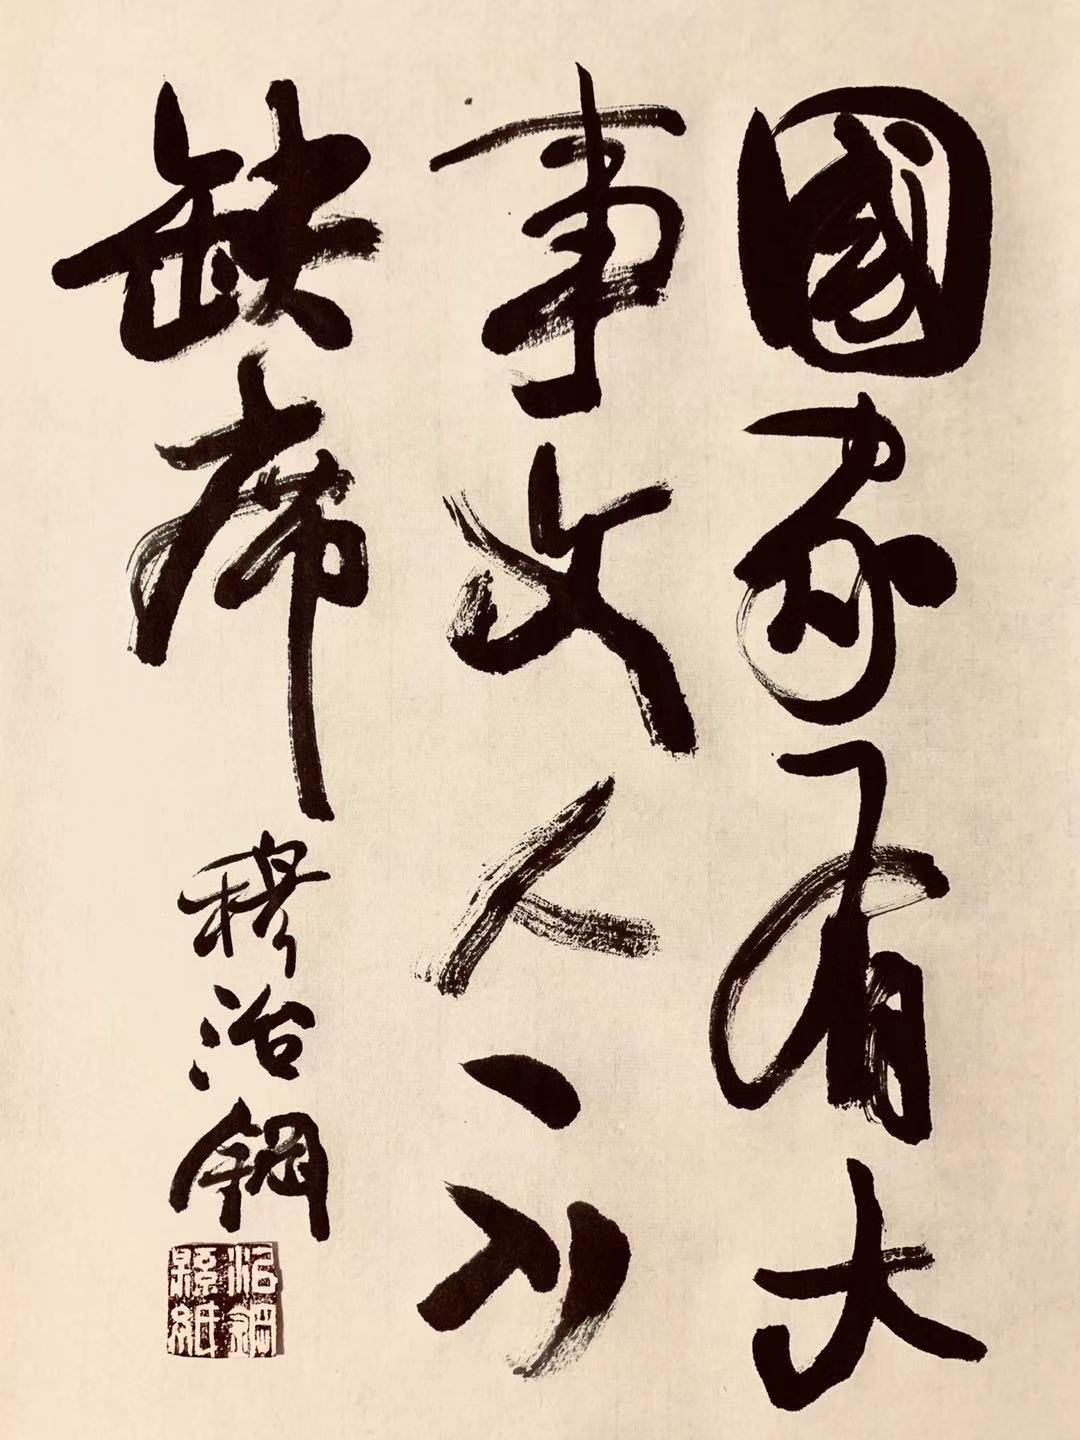 國家有大
事文人不
缺席
穆治鋼
治鋼